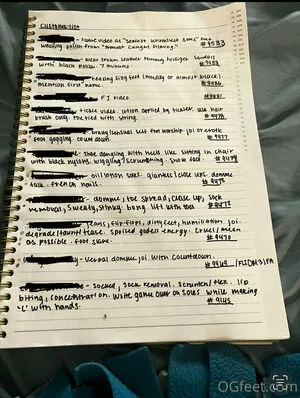 Customer list
- Same video as "sexiest wrinkliest soles" but
wearing polish from "almost caught filming."
#9483
- wear brown leather tommy hilfiger sandals
with black polish. 7 minutes
- teasing silly feet (muddy or almost black).
mention first name. #9486
FJ video #9481
- tickle video. lotion applied by tickler. use hair
brush only. Toe tied with string. #9478
- bratty/sensual sub foot worship joi or exotic
foot gagging. count down. #9477
- shoe dangling with heels like sitting in chair
with black nylons. wiggling/scrunching. show face. #9479
- oil/lotion soles. giantess/close ups. domme
talk. french nails. #9475
- domme, toe spread, close up, sock
removal, sweaty, stinky. boring. lift with toes
- jeans, flip-flops, dirty feet, humiliation, joi.
degrade/taunt/tease. Spoiled goddess energy. Cruel/mean
as possible. foot slave. #9470
- verbal domme joi with countdown.
- socked, sock removal. scrunch/flex. lip
biting, concentration. write game over on soles while making
"L" with hands. #9465
OGfeet.com